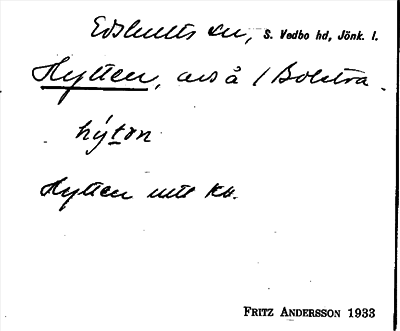 Edshults sn, S. Vedbo hd, Jönk. l.
Hytten, avs å 1 Bolstra.
hýtən
Hytten utt kv.
FRITZ ANDERSSON 1933